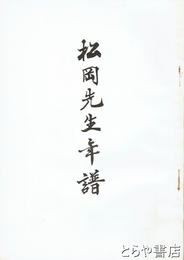 松岡先生年譜
とらや書店